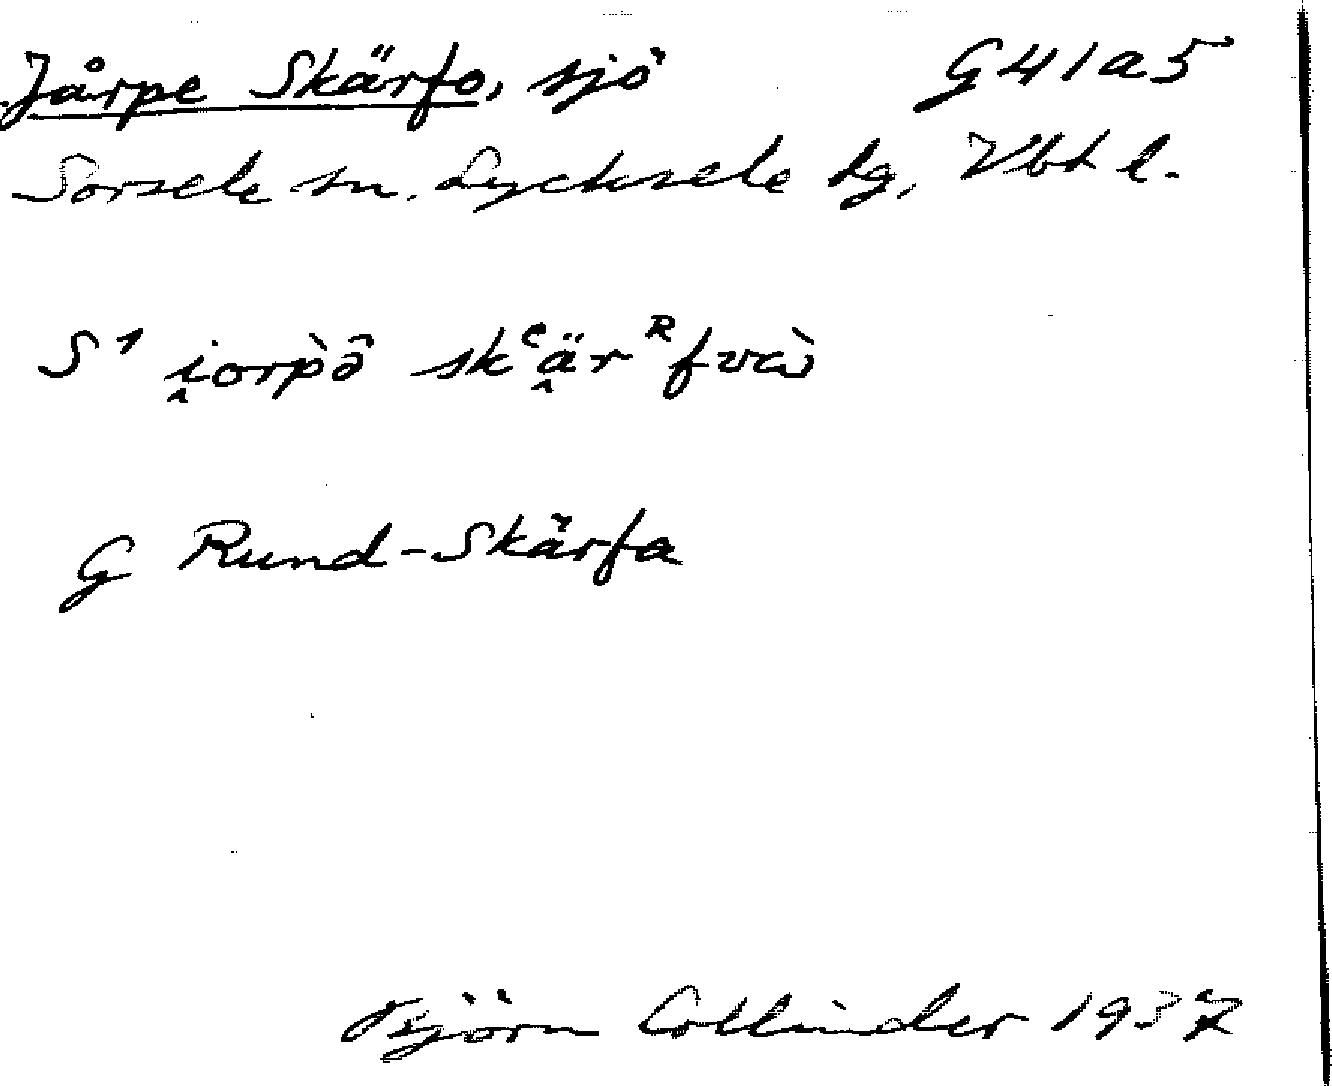 Jårpe Skärfo, sjö G41a5
Sorsele sn. Lycksele lg, Vbt l.
S¹ i̭orp̀ô skᶜä̭rᴿfvà
G Rund-Skärfa
Björn Collinder 1937